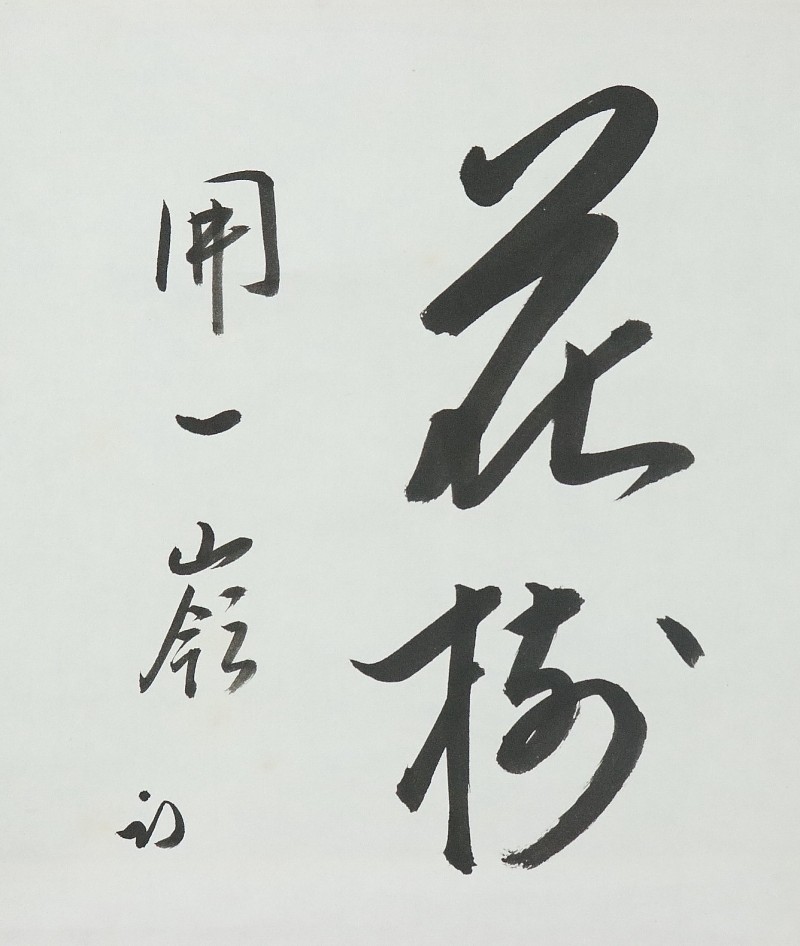 花樹
開一嶺